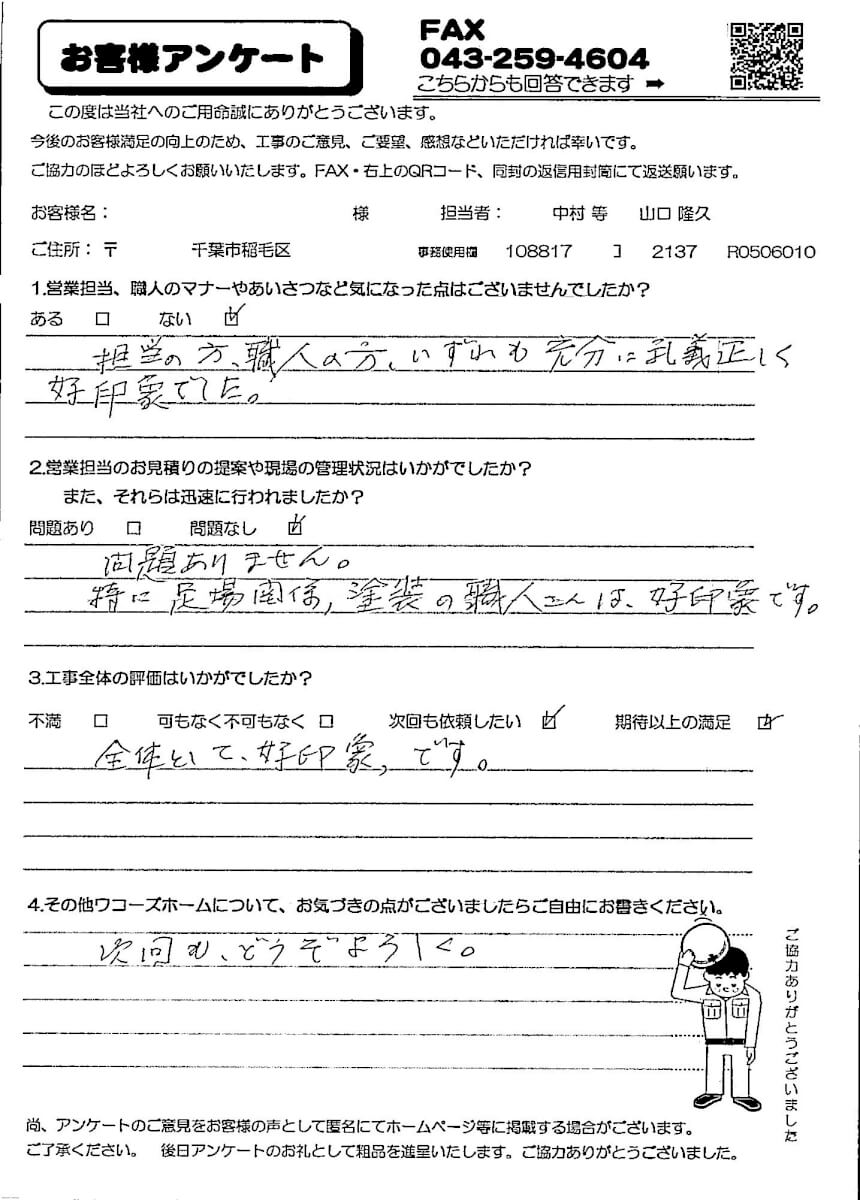 お客様アンケート
FAX
043-259-4604
こちらからも回答できます ➡
この度は当社へのご用命誠にありがとうございます。
今後のお客様満足の向上のため、工事のご意見、ご要望、感想などいただければ幸いです。
ご協力のほどよろしくお願いいたします。FAX・右上のQRコード、同封の返信用封筒にて返送願います。
お客様名： 様 担当者： 中村 等 山口 隆久
ご住所：〒 千葉市稲毛区 事務使用欄 108817 コ 2137 R0506010
1.営業担当、職人のマナーやあいさつなど気になった点はございませんでしたか？
ある □ ない ☑
担当の方、職人の方、いずれも充分に礼義正しく
好印象でした。
2.営業担当のお見積りの提案や現場の管理状況はいかがでしたか？
また、それらは迅速に行われましたか？
問題あり □ 問題なし ☑
問題ありません。
特に足場関係，塗装の職人さんは、好印象です。
3.工事全体の評価はいかがでしたか？
不満 □ 可もなく不可もなく □ 次回も依頼したい ☑ 期待以上の満足 ☑
全体として、好印象，です。
4.その他ワコーズホームについて、お気づきの点がございましたらご自由にお書きください。
次回も、どうぞよろしく。
ご協力ありがとうございました
尚、アンケートのご意見をお客様の声として匿名にてホームページ等に掲載する場合がございます。
ご了承ください。 後日アンケートのお礼として粗品を進呈いたします。ご協力ありがとうございました。